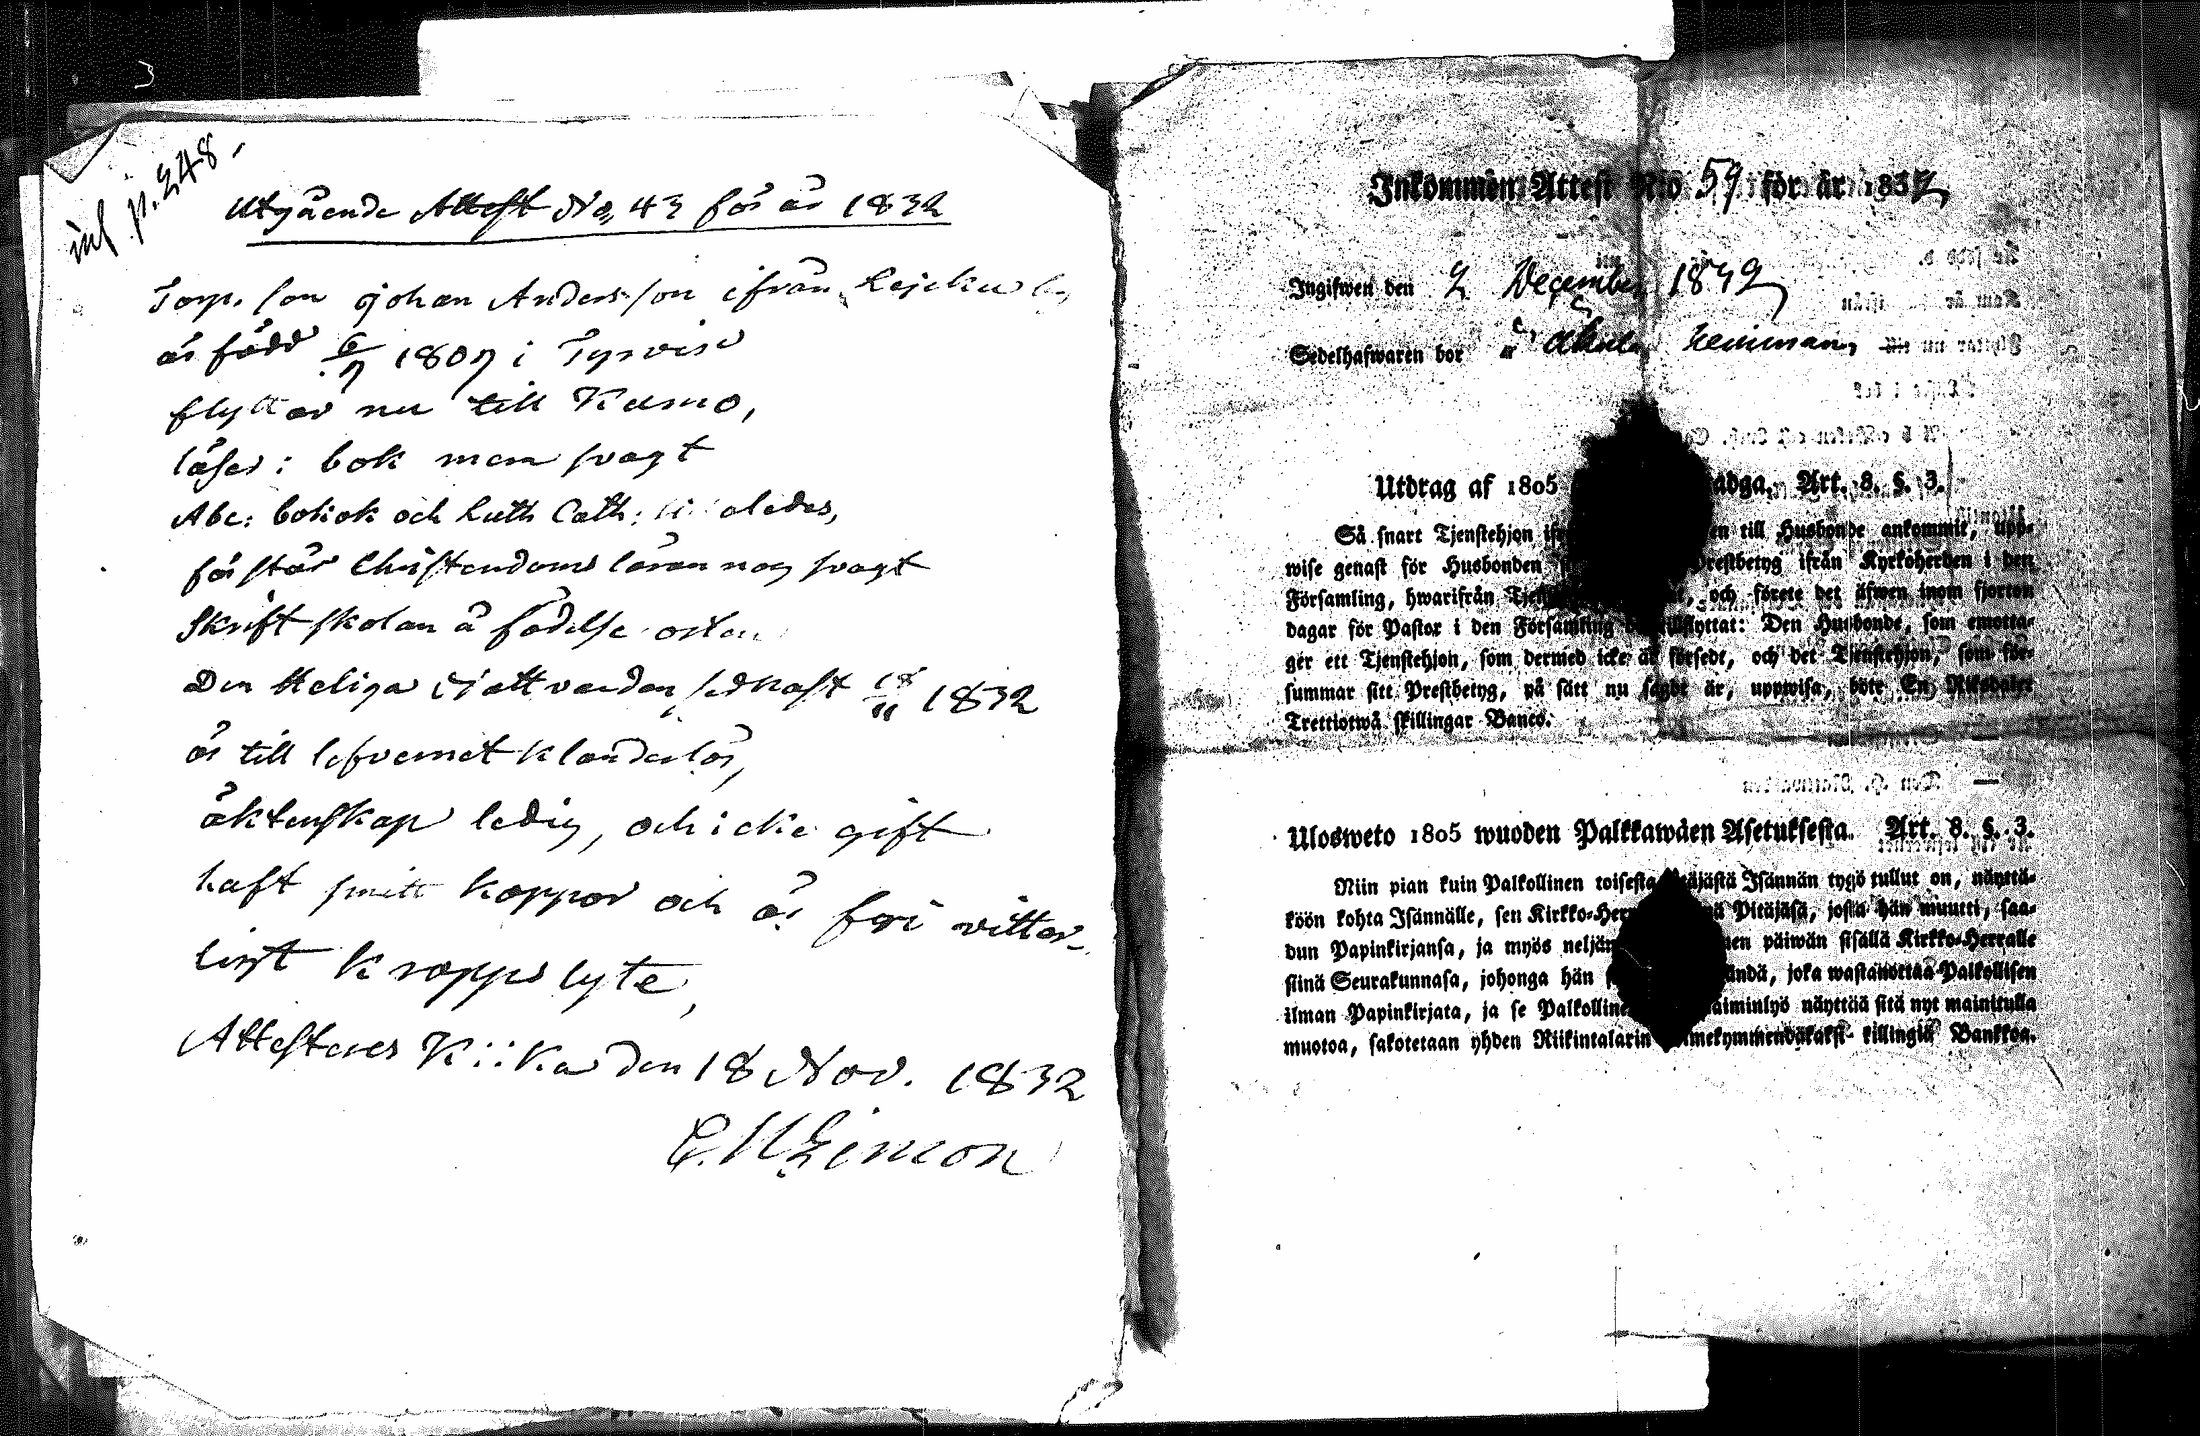 3
inf p. 248.
Utgående Attest No 43 för år 1832
Torp. son Johan Andersson ifrån
är född 6/7 1807 i Tyrvis
flyttar nu till Kumo,
läser: bok men svagt
Abc: bokok och Luth Cath: likaledes,
förstår Christendoms läran nog svagt
Skriftskolan å födelse orten
Den Heliga Nattvarden sednast 18/11 1832
är till lefvernet klanderlös,
äktenskap ledig, och icke gift
haft smitt koppor och är fri vitter-
ligt kropps lyte,
Attesteres Kiika den 18 Nov. 1832
Inkommen Attest N:o 59 för år 1832
Ingifwen den 2 December 1832
Sedelhafwaren bor
Utdrag af 1805 adga. Art. 8. §. 3.
Så snart Tjenstehjon en till Husbonde ankommit, upp-
wise genast för Husbonden Prestbetyg ifrån Kyrkoherden i den
Församling, hwarifrån , och förete det äfwen inom fjorton
dagar för Pastor i den Församling tillflyttat: Den Husbonde, som emotta-
ger ett Tjenstehjon, som dermed icke är försedt, och det Tjenstehjon, som för-
summar sitt Prestbetyg, på sätt nu sagdt är, uppwisa, böte En Riksdaler
Trettiotwå skillingar Banco.
Ulosweto 1805 wuoden Palkkawäen Asetuksesta. Art. 8. §. 3.
Niin pian kuin Palkollinen toisesta Pitäjästä Isännän tygö tullut on, näyttä-
köön kohta Isännälle, sen Kirkko-Her Pitäjäsä, josta hän muutti, saa-
dun Papinkirjansa, ja myös neljän päiwän sisällä Kirkko-Herralle
siinä Seurakunnasa, johonga hän joka wastanottaa Palkollisen
ilman Papinkirjata, ja se Palkolline laiminlyö näyttää sitä nyt mainitulla
muotoa, sakotetaan yhden Riikintalarin kolmekymmendäkaksi killingiä Bankkoa.